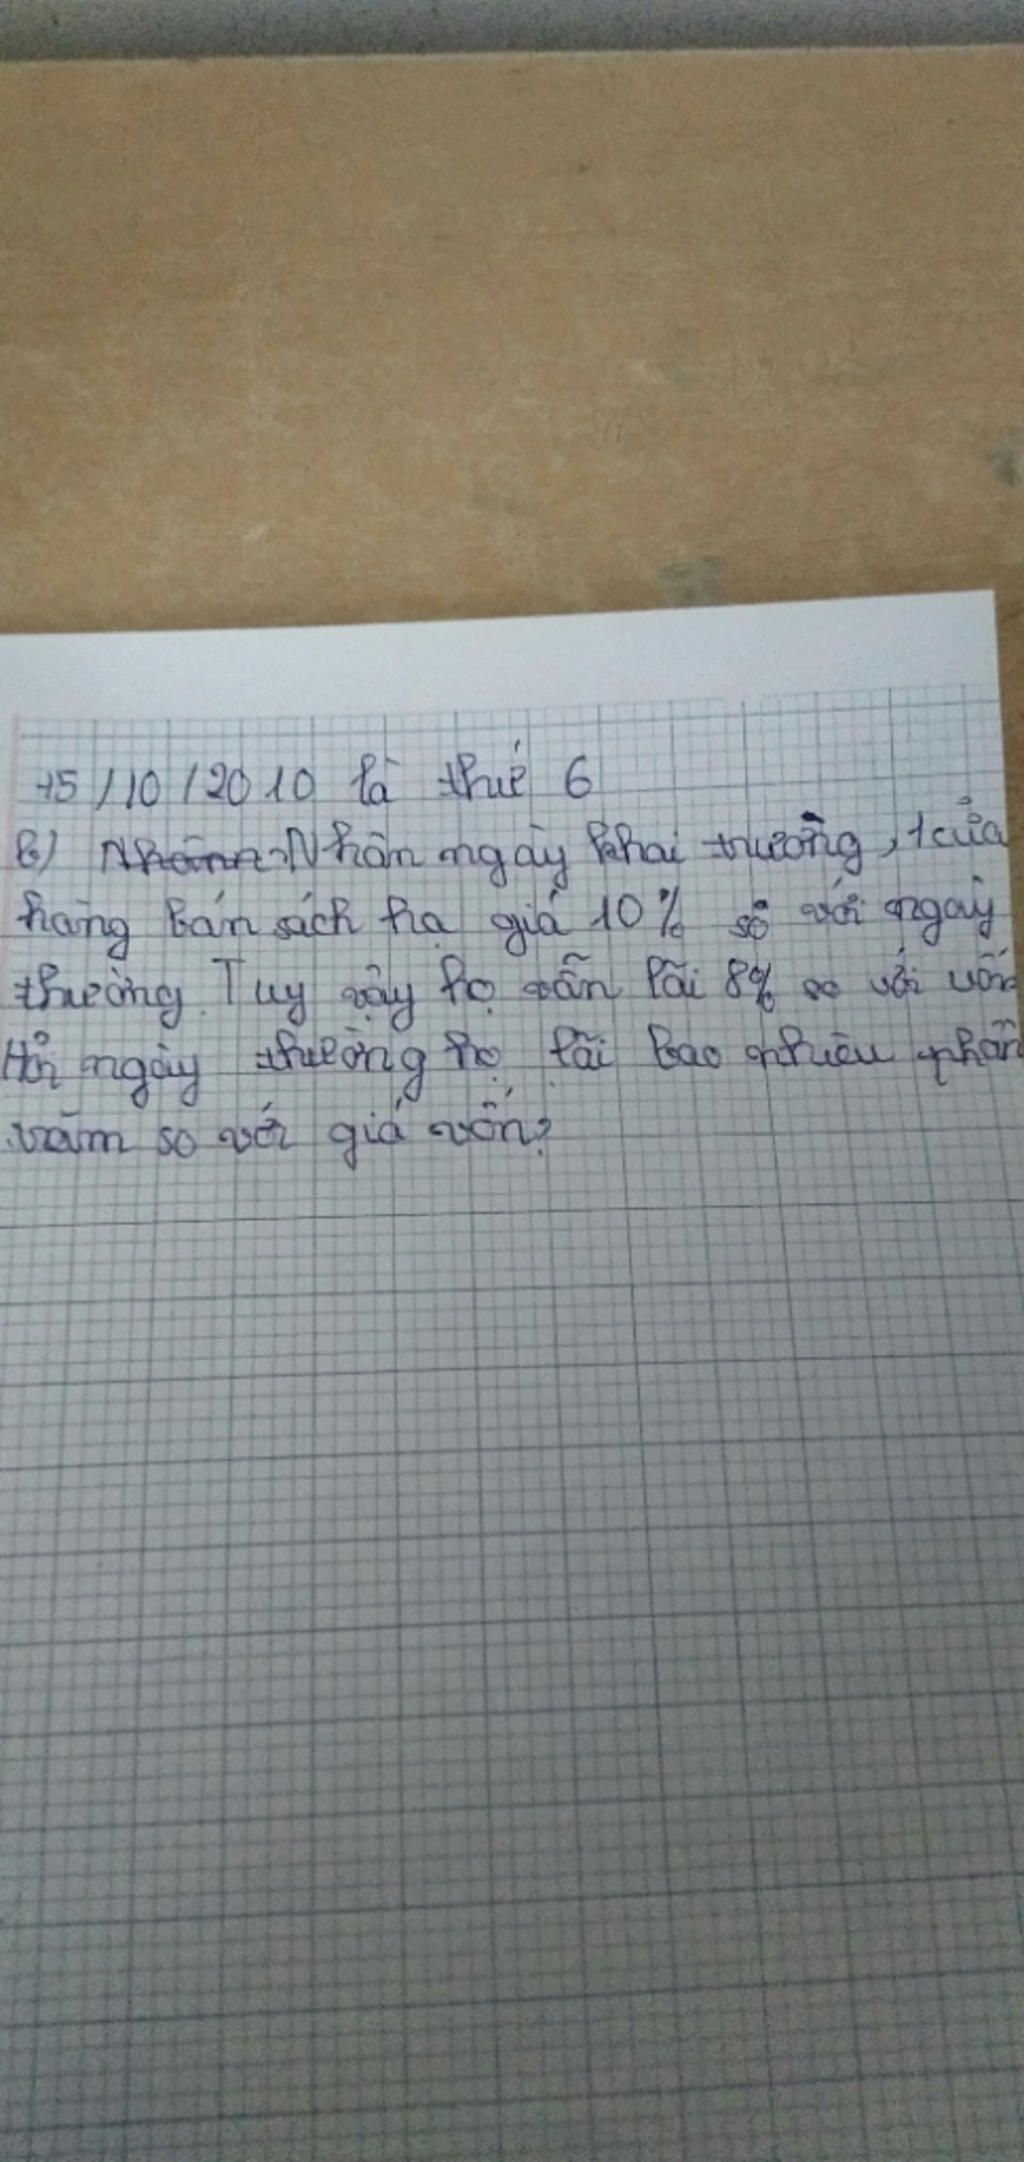 15/10/2010 là thứ 6
b) Nhân ngày khai trường, 1 cửa
hàng bán sách hạ giá 10% số với ngày
thường. Tuy vậy họ vẫn lãi 8% so với vốn
Hỏi ngày thường họ lãi bao nhiêu phần
trăm so với giá vốn?